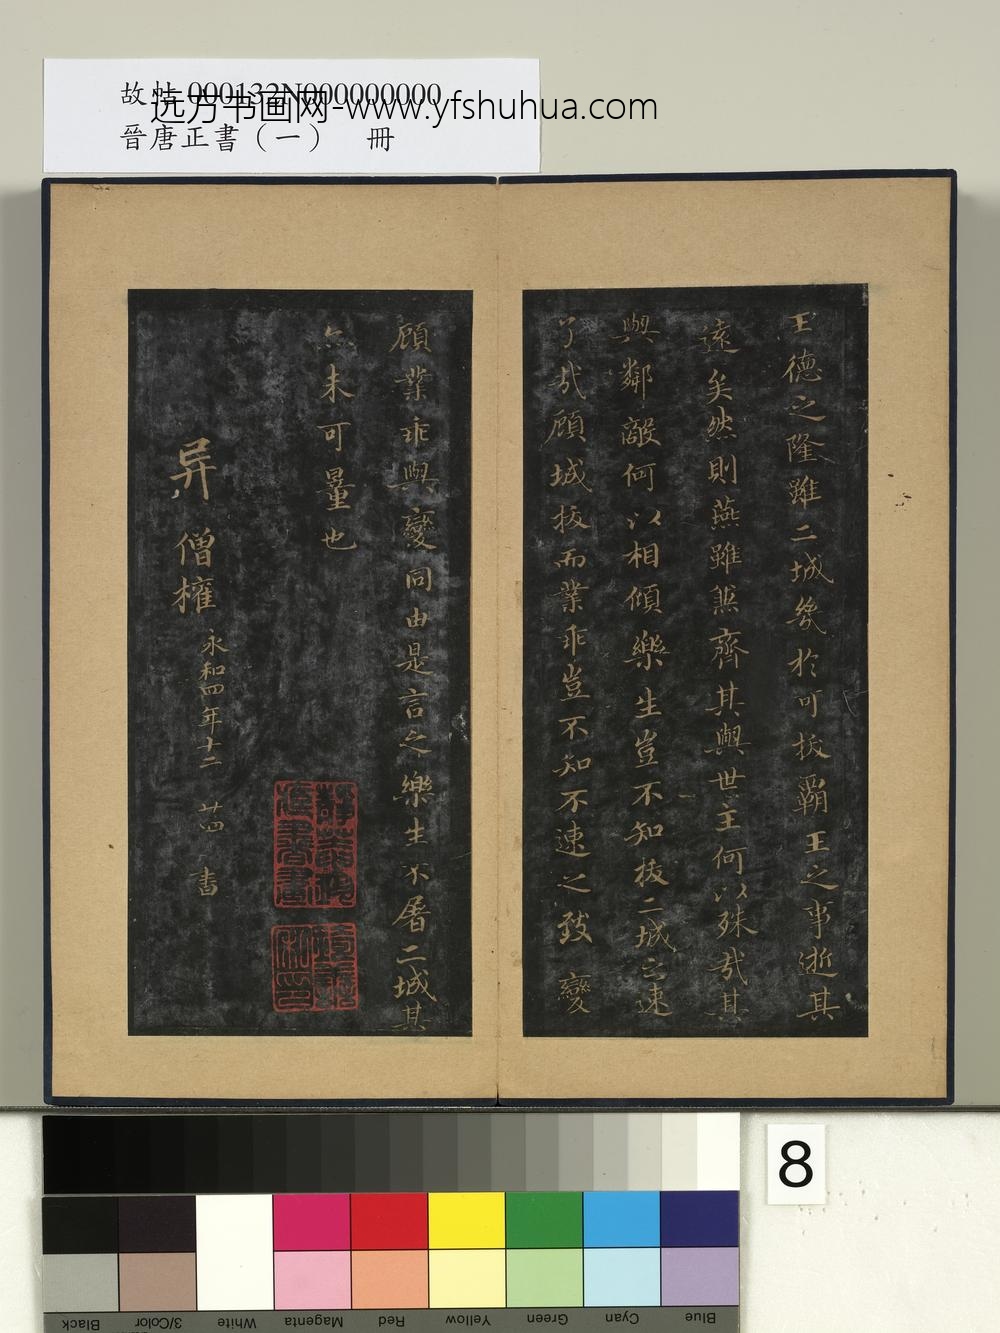 故帖 000132N000000000
远方书画网-www.yfshuhua.com
晉唐正書（一） 冊
王德之隆雖二城幾於可拔霸王之事逝其
遠矣然則燕雖兼齊其與世主何以殊哉其
與鄰敵何以相傾樂生豈不知拔二城之速
了哉顧城拔而業乖豈不知不速之致變
顧業乖與變同由是言之樂生不屠二城其
亦未可量也
异 僧權
永和四年十二 廿四 書
8
Black
3/Color
White
Magenta
Red
Yellow
Green
Cyan
Blue